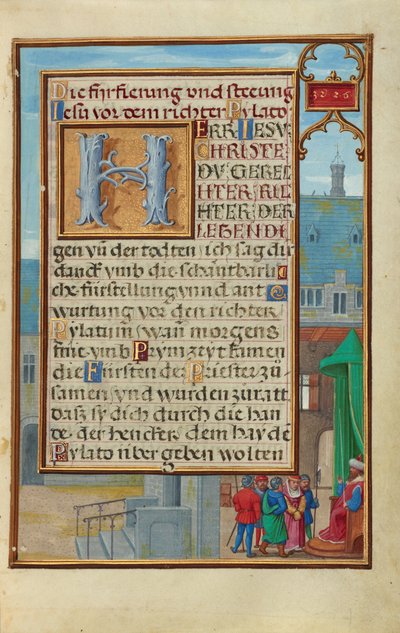 Die fürfierung vnd steeung
Iesu vor dem richter Pylato
HERR IESV
CHRISTE
DV GEREC
HTER RIC
HTER DER
LEBENDI
gen vn̄ der todten ich sag dir
danck vmb die schantbarli
che fürstellung vnnd ant
wurtung vor den richter
Pylatum wan̄ morgens
frúe vmb Prym zeyt kamen
die Fúrsten der Priester zů
samen vnd wurden zu ratt
das sy dich durch die han
de der hencker dem hayde
Pylato über geben wolten